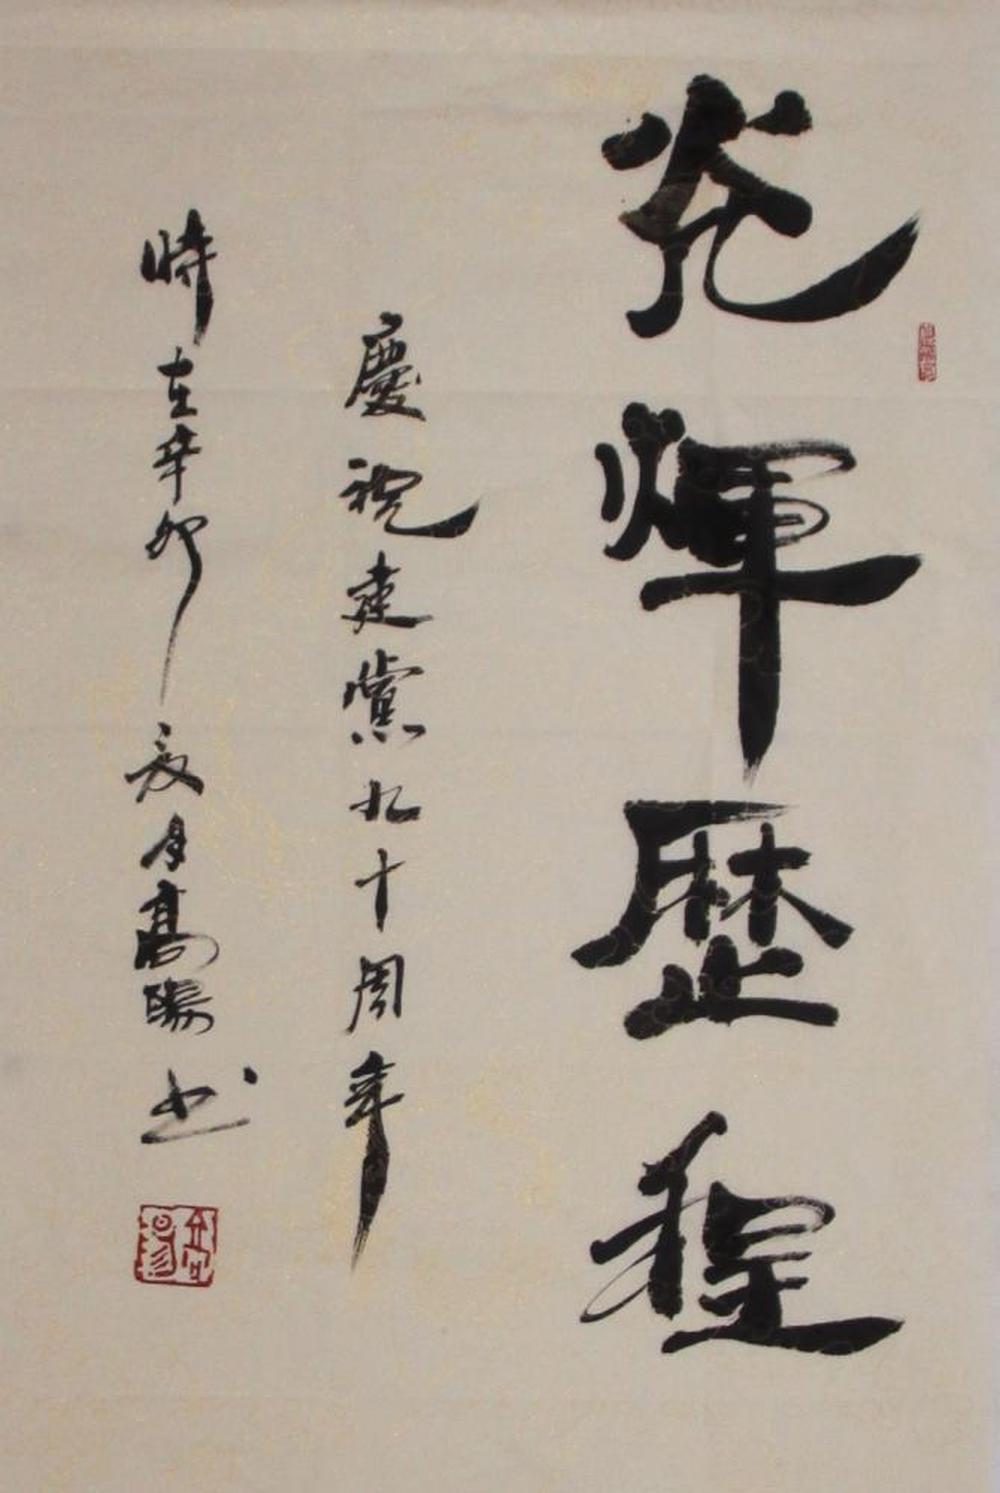 光煇歷程
慶祝建黨九十周年
時在辛卯夏月高陽书